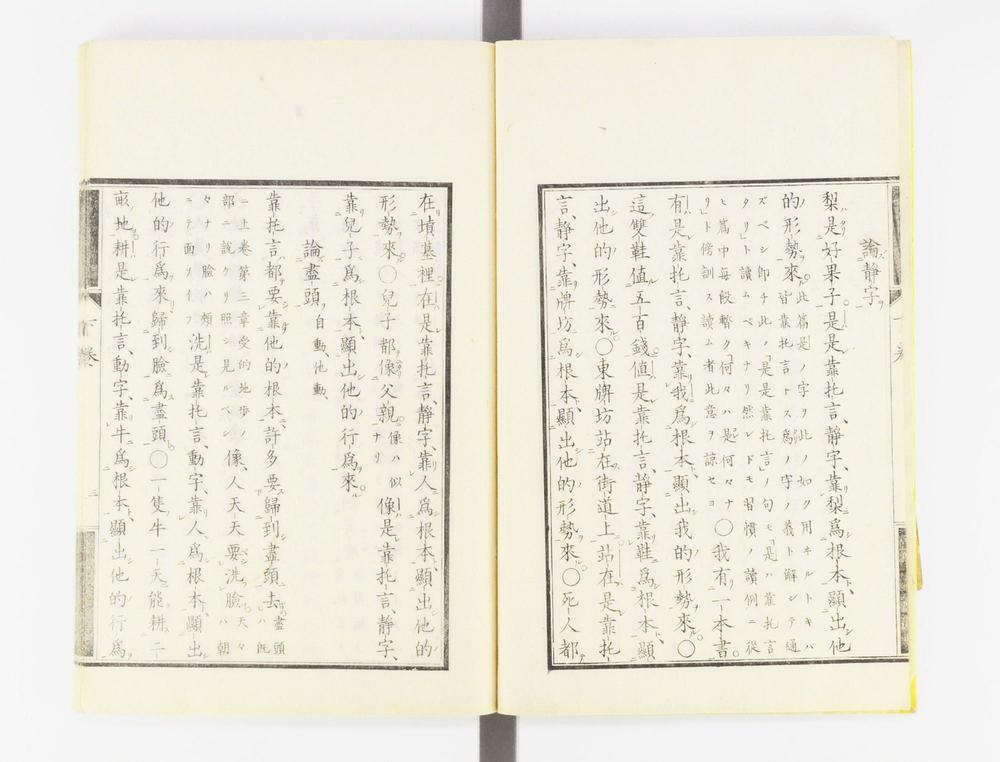 論静字
梨是好果子是是靠托言、静字、靠梨爲根本、顯出他
的形勢來此篇是ノ字ヲ此ノ如ク用キルトキハ
皆靠托言トス爲ノ字ノ義ト解シテ通
ズベシ即チ此ノ「是是靠托言」ノ句モ「是ハ靠托言
タリ」ト讀ムベキナリ然レドモ習慣ノ讀例ニ從
ヒ篇中毎段暫ク「何々ハ是何々ナ
リ」ト傍訓ス讀ム者此意ヲ諒セヨ
〇我有一本書
有是靠托言、静字、靠我爲根本、顯出我的形勢來〇
這雙鞋値五百錢値是靠托言、静字、靠鞋爲根本、顯
出他的形勢來〇東牌坊站在街道上站在是靠托
言、静字、靠牌坊爲根本、顯出他的形勢來〇死人都
在墳墓裡在是靠托言、静字、靠人爲根本、顯出他的
形勢來〇兒子都像父親像ハ似
ナリ
像是靠托言、静字、
靠兒子爲根本、顯出他的行爲來
論盡頭 自動、他動、
靠托言都要靠他的根本、許多要歸到盡頭去盡頭
ハ既
ニ上卷第三章受的地歩ノ
部ニ説クリ照シ見ルベシ
像、人天天要洗臉天々ハ朝
々ナリ臉ハ頬
ニテ面ヲイフ
洗是靠托言、動字、靠人、爲根本、顯出
他的行爲來、歸到臉爲盡頭〇一隻牛一天能耕二
畝地耕是靠托言、動字、靠牛爲根本、顯出他的行爲
下卷
三